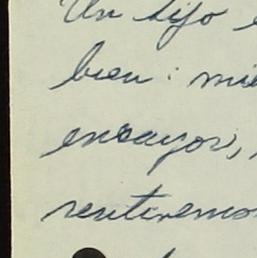 Un
bien: mie
ensayos,
sentiremos